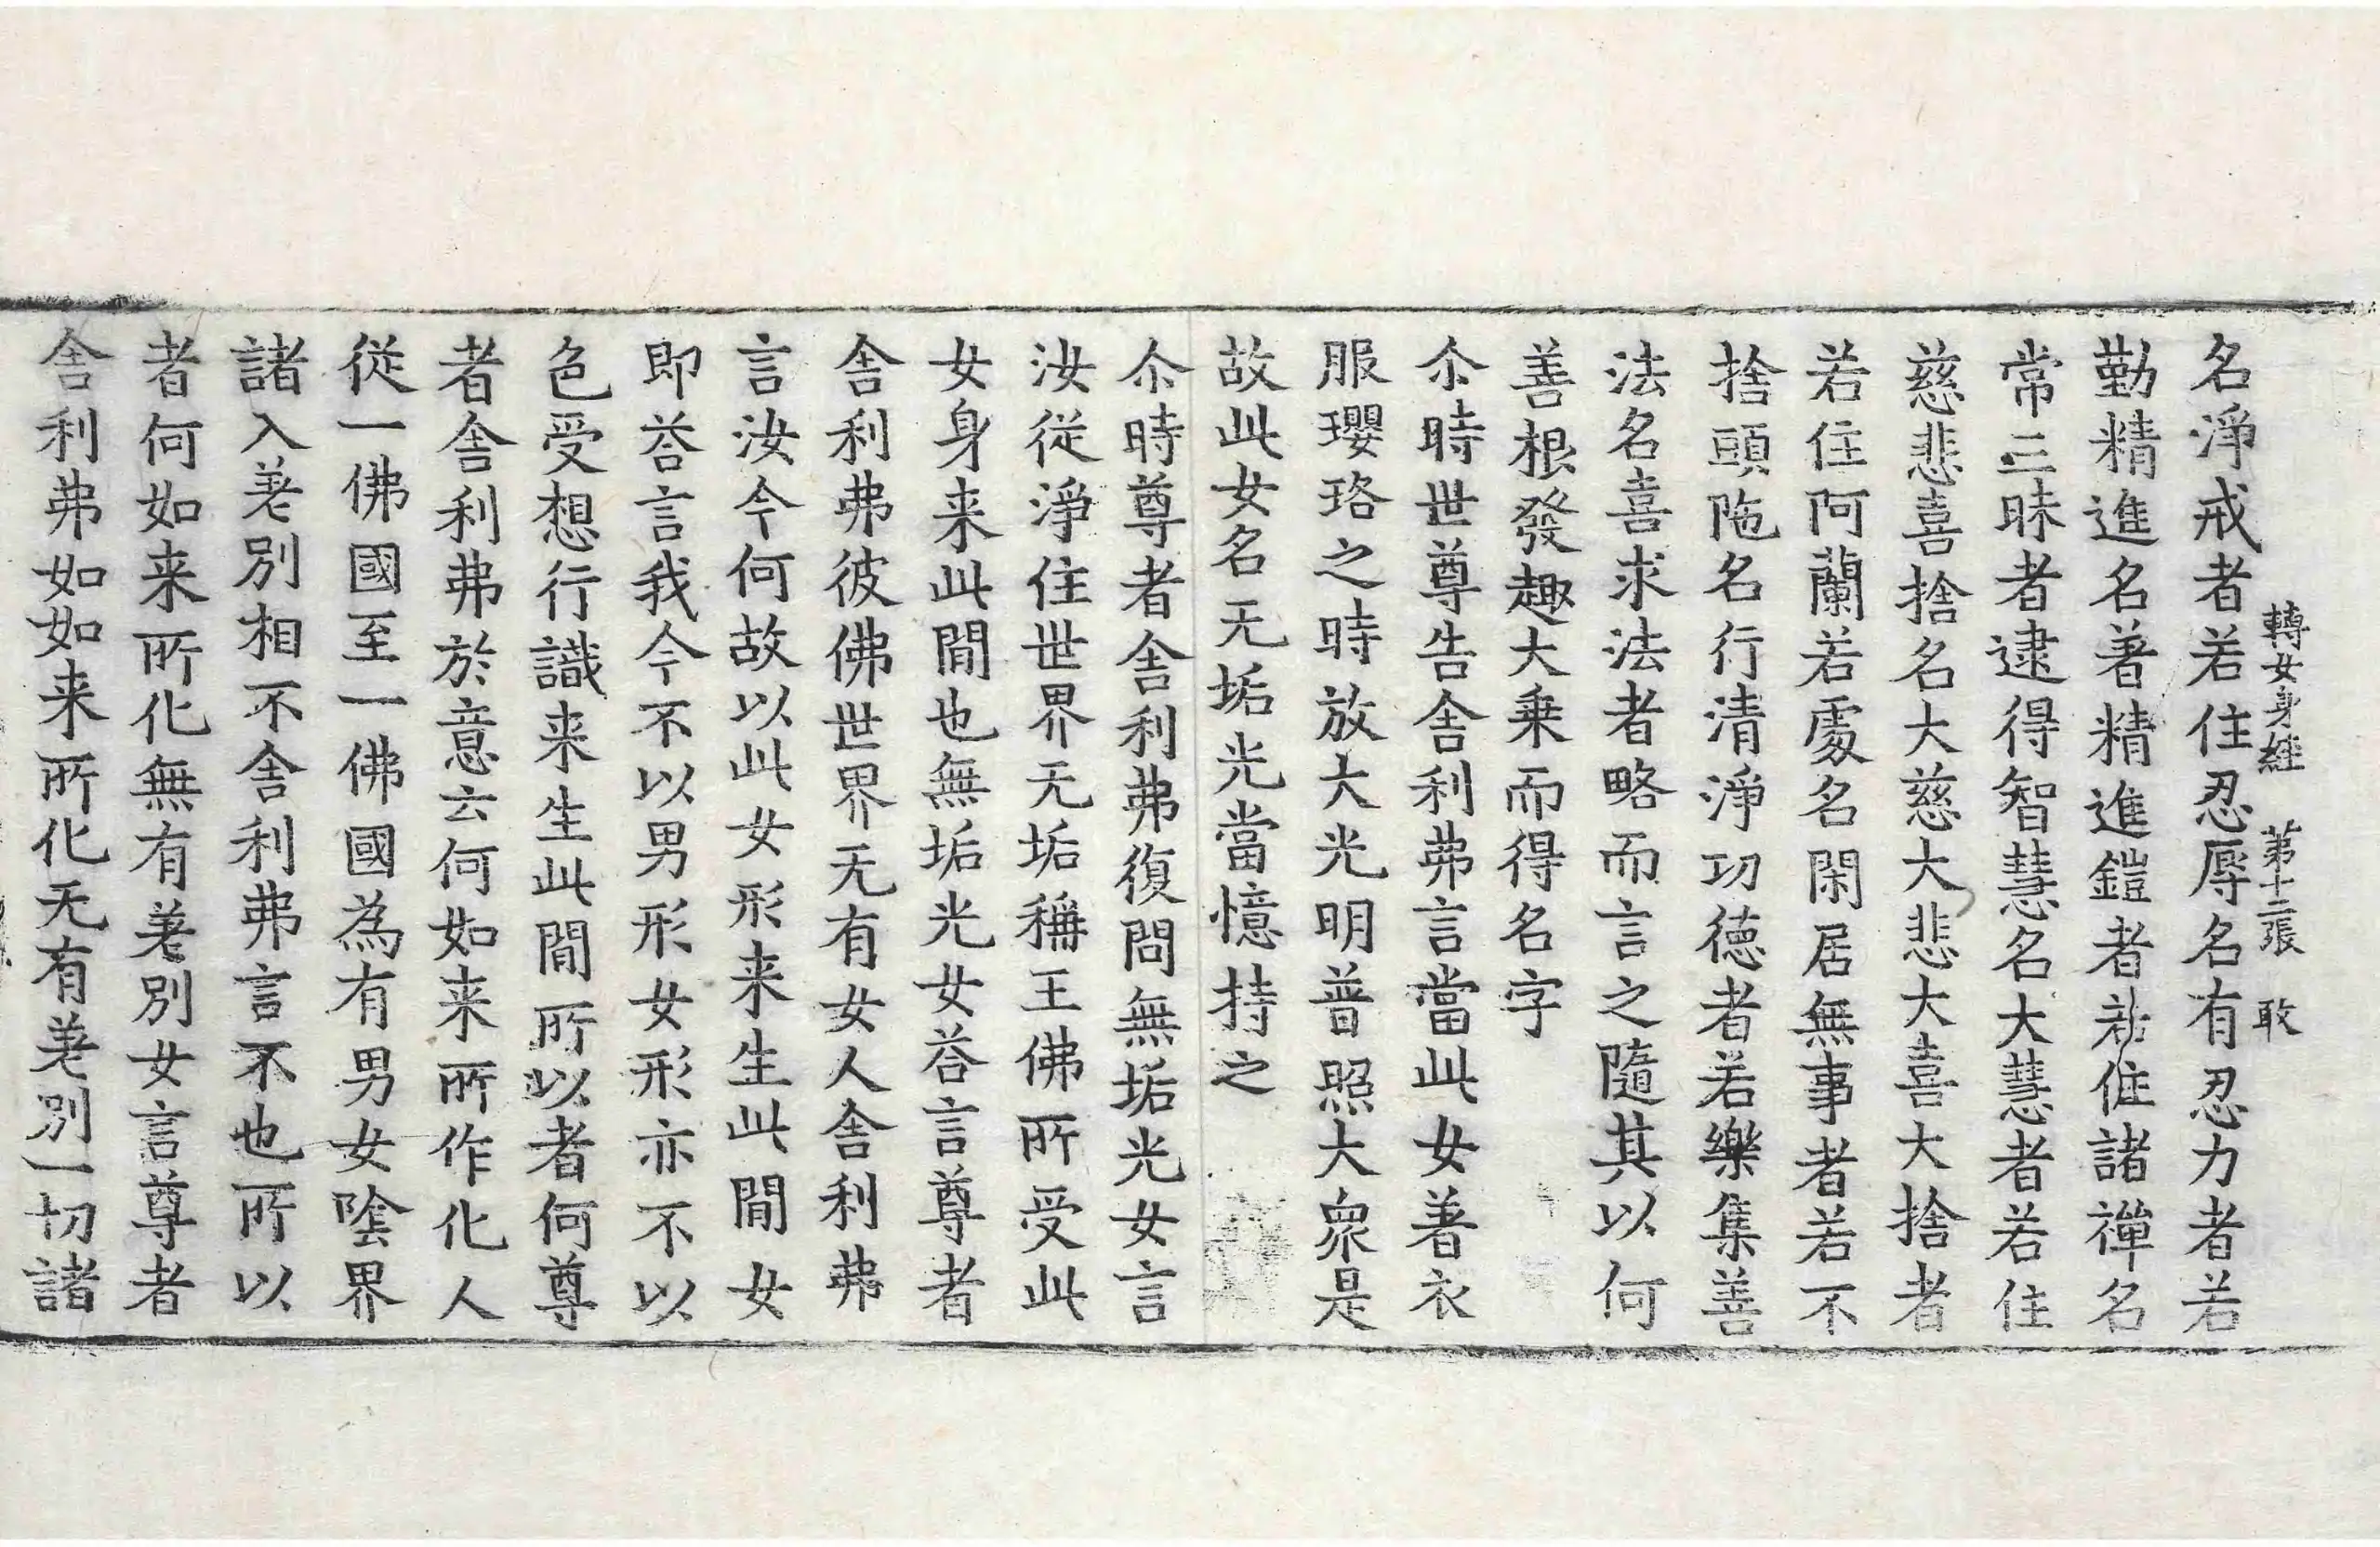 轉女身經　第十二張　敢
名淨戒者若住忍辱名有忍力者若
勤精進名著精進鎧者若住諸禪名
常三昧者逮得智慧名大慧者若住
慈悲喜捨名大慈大悲大喜大捨者
若住阿蘭若處名閑居無事者若不
捨頭陁名行清淨功德者若樂集善
法名喜求法者略而言之隨其以何
善根發趣大乗而得名字
尒時世尊告舎利弗言當此女著衣
服瓔珞之時放大光明普照大衆是
故此女名无垢光當憶持之
尒時尊者舎利弗復問無垢光女言
汝從淨住世界无垢稱王佛所受此
女身来此閒也無垢光女荅言尊者
舎利弗彼佛世界无有女人舎利弗
言汝今何故以此女形来生此閒女
即荅言我今不以男形女形亦不以
色受想行識来生此閒所以者何尊
者舎利弗於意云何如来所作化人
從一佛國至一佛國為有男女陰界
諸入差別相不舎利弗言不也所以
者何如来所化無有差別女言尊者
舎利弗如如来所化无有差別一切諸